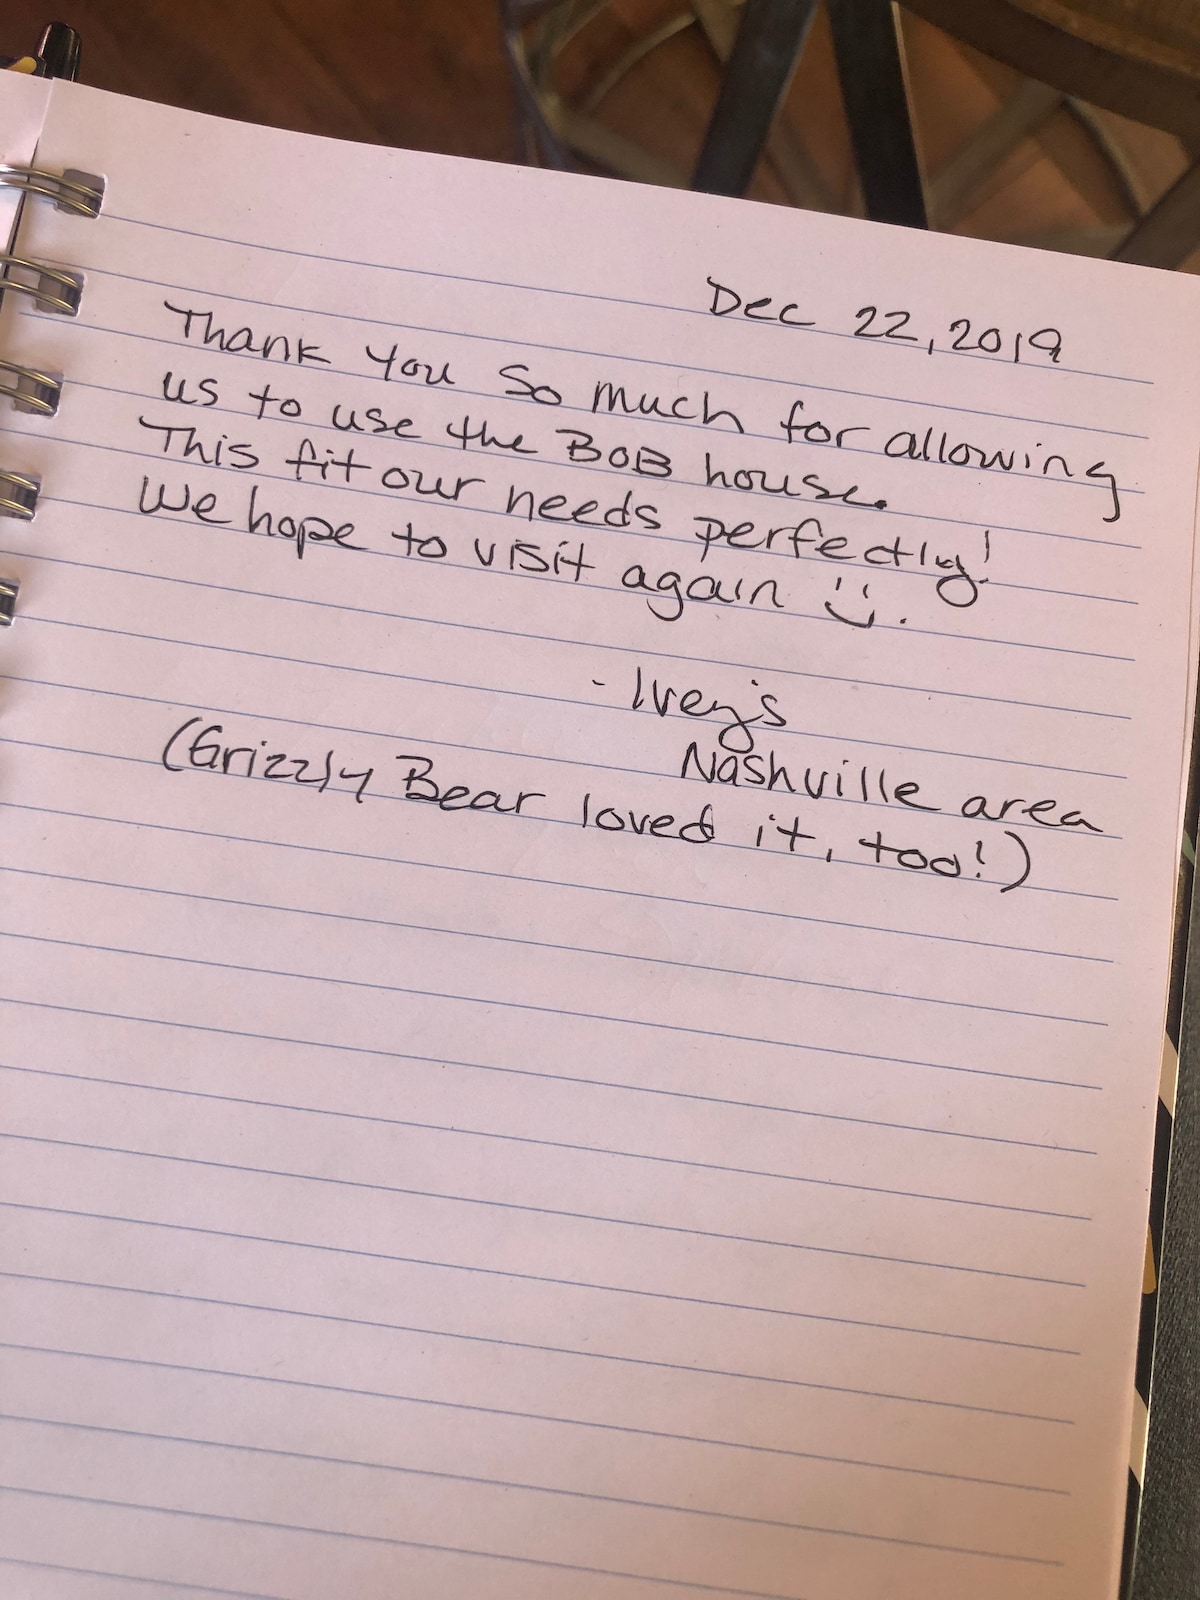 Dec 22, 2019
Thank you so much for allowing
us to use the BOB house.
This fit our needs perfectly!
We hope to visit again :).
- Ivey's
Nashville area
(Grizzly Bear loved it, too!)